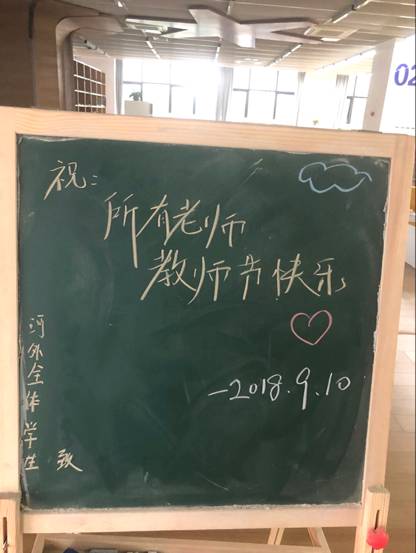 祝：
所有老师
教师节快乐
-2018.9.10
河外全体学生 致
02